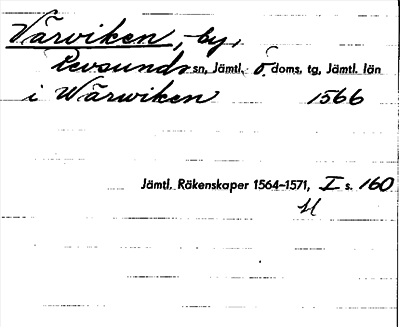 Värviken, by,
Revsunds sn, Jämtl. ö. doms. tg, Jämtl. län
i Wärwiken 1566
Jämtl. Räkenskaper 1564-1571, I s. 160